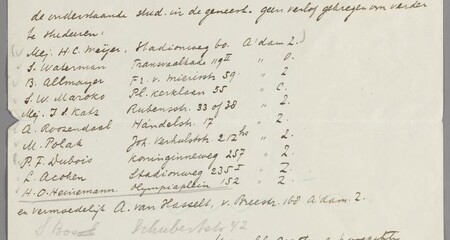 de onderstaande stud. in de geneesk. geen verlof gekregen om verder
te studeren:
Mej. H.C. Meijer, Stadionweg 60. A'dam Z.
S. Waterman Transvaalkade 119 II " O.
B. Allmayer Fr. v. Mierisstr 59. " Z
S.W. Maroko Pl. Kerklaan 55 " C.
Mej. I.S. Katz Rubensstr. 33 of 38 " Z.
A. Roosendaal Händelstr. 17 " Z
M. Polak Joh. Verhulststr. 212 hs " Z.
P.F. Dubois Koninginneweg 257 " Z
L. Acohen Stadionweg 235 " Z.
H.O. Heinemann Olympiaplein 152 " Z.
en vermoedelijk A. van Hasselt, v. Breestr 168 A'dam Z.
Schubertstr 42